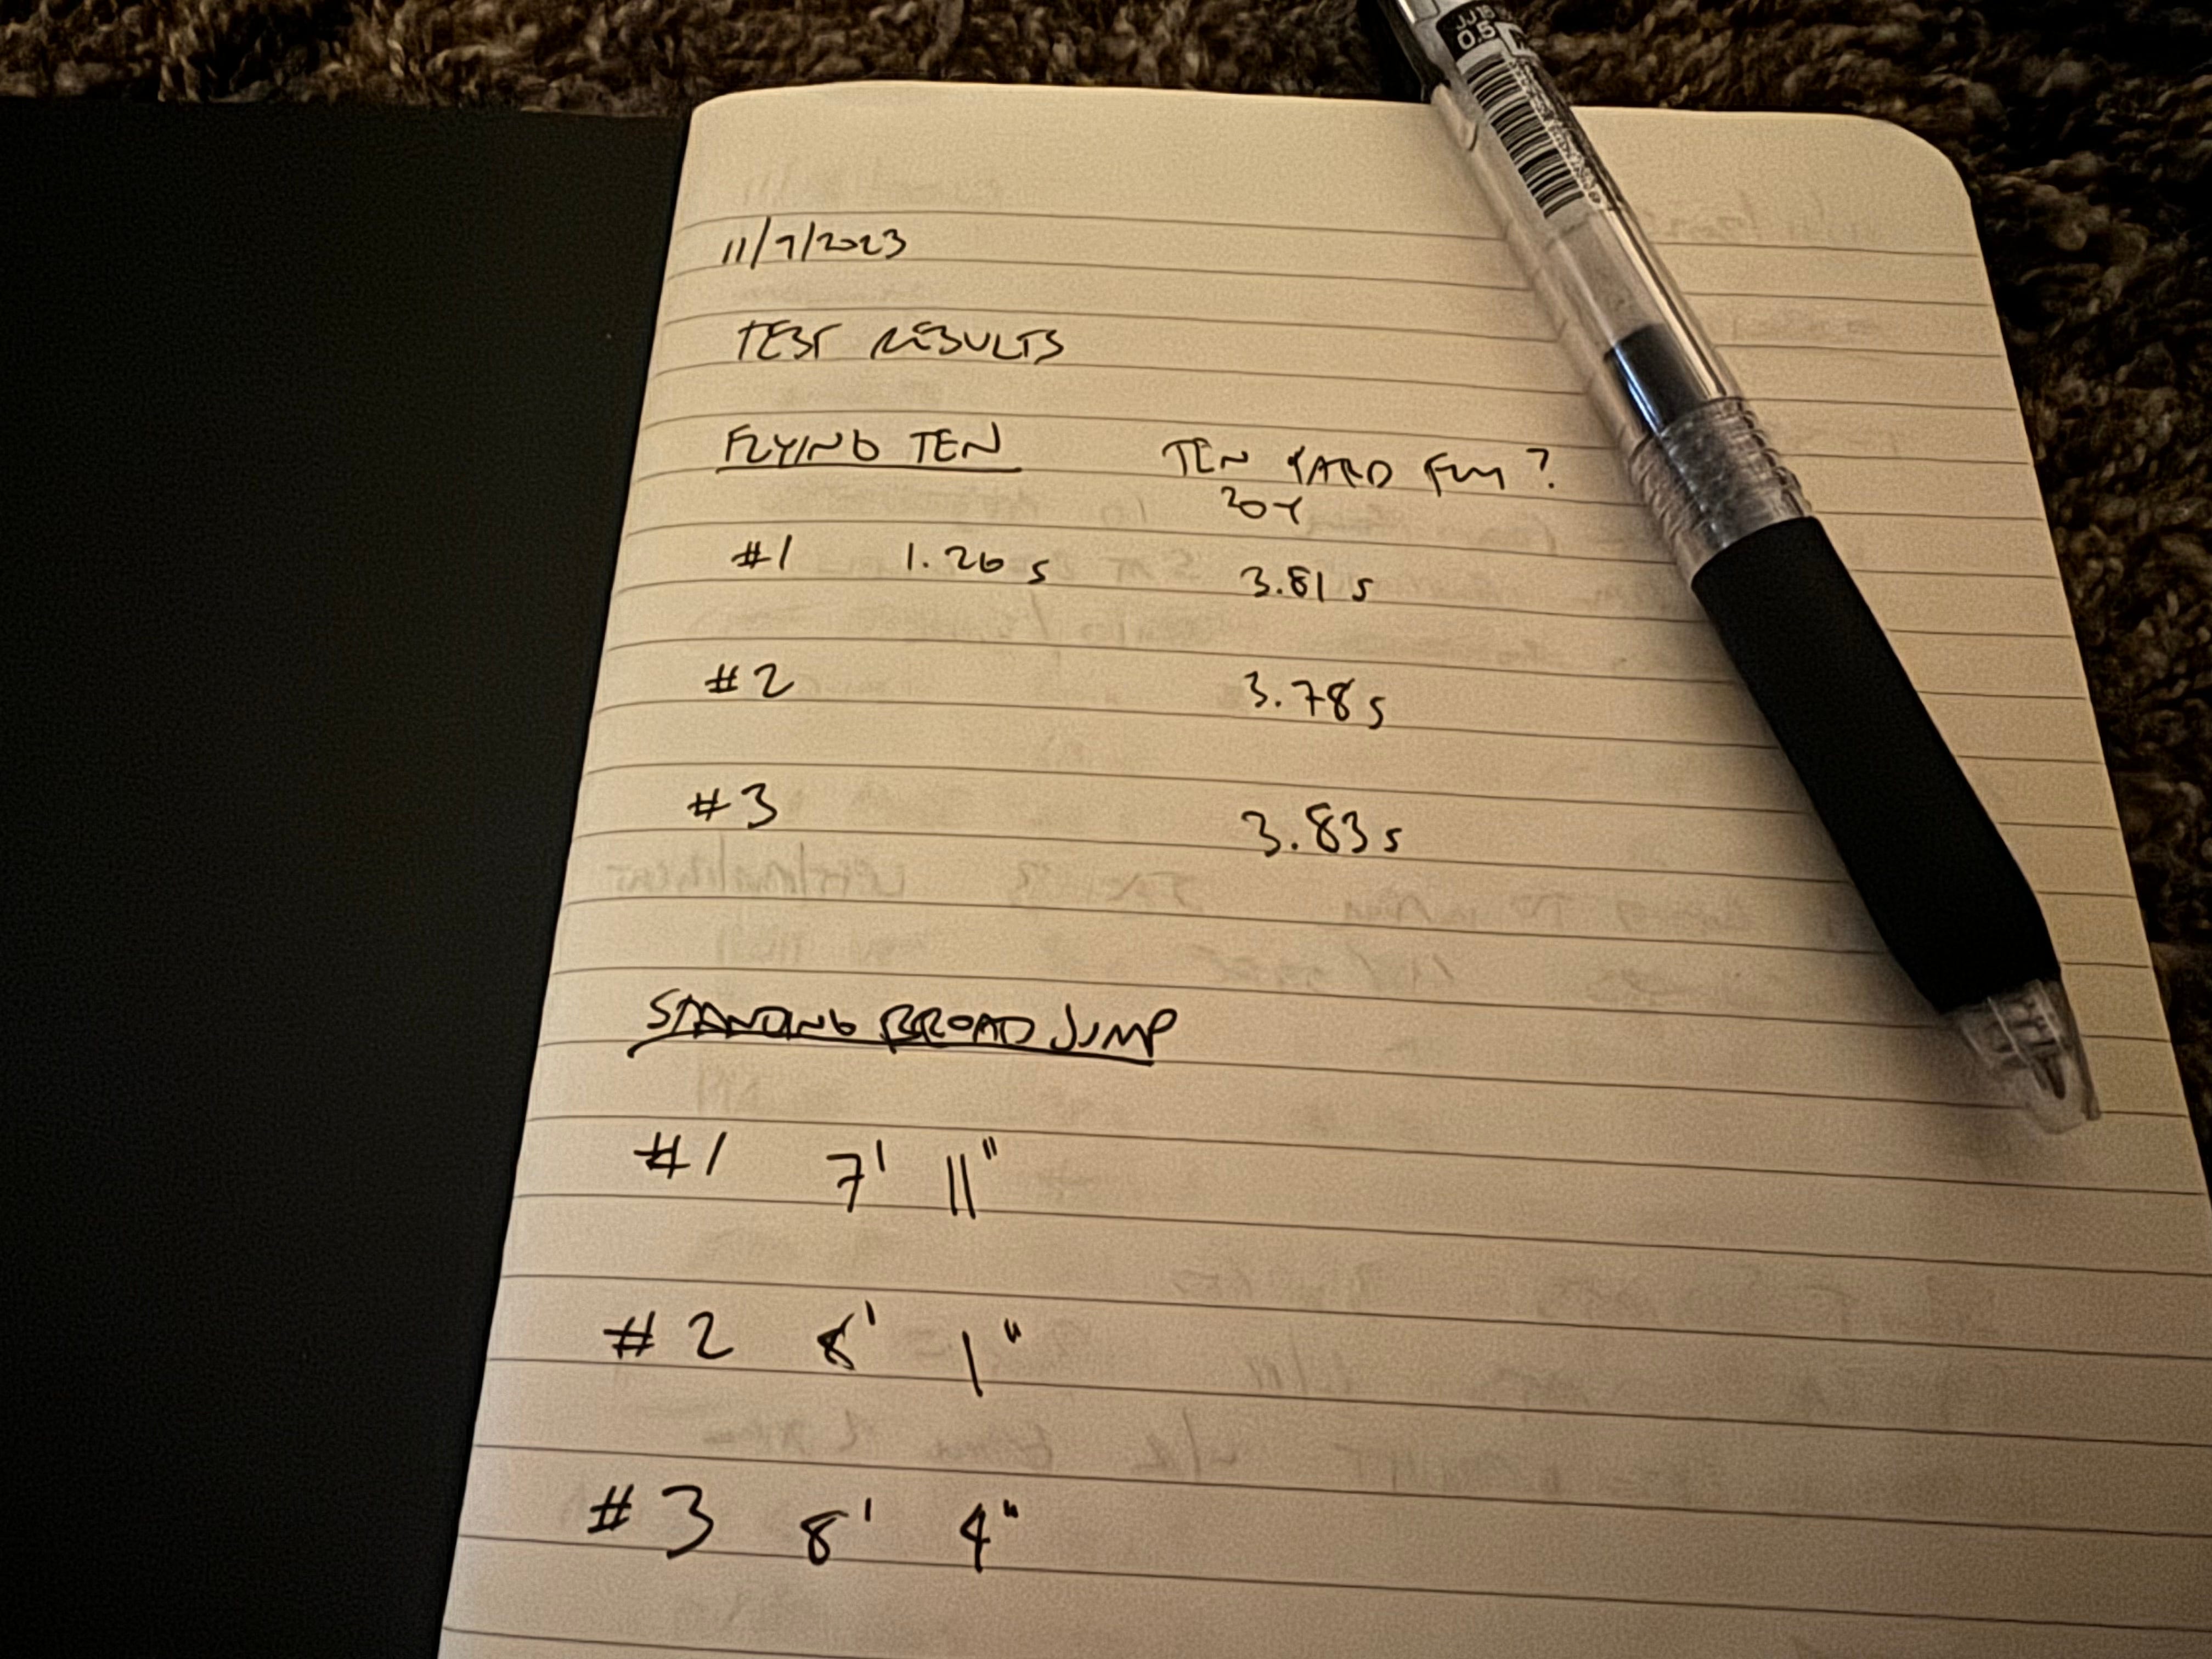 JJ15
0.5
11/7/2023
TEST RESULTS
FLYING TEN TEN YARD FLY?
20Y
#1 1.26 s 3.81 s
#2 3.78 s
#3 3.83 s
STANDING BROAD JUMP
#1 7' 11"
#2 8' 1"
#3 8' 4"